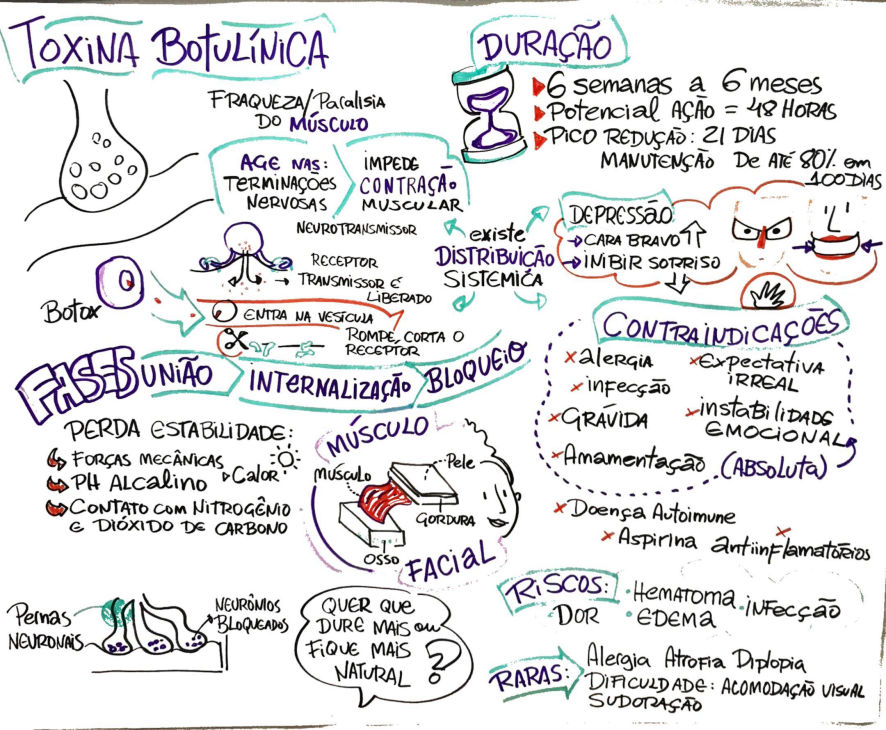 TOXINA BOTULÍNICA
FRAQUEZA/Paralisia
DO MÚSCULO
AGE NAS:
TERMINAÇÕES
NERVOSAS
IMPEDE
CONTRAÇÃO
MUSCULAR
NEUROTRANSMISSOR
RECEPTOR
TRANSMISSOR É
LIBERADO
Botox
ENTRA NA VESÍCULA
ROMPE, CORTA O
RECEPTOR
existe
DISTRIBUIÇÃO
SISTEMICA
DURAÇÃO
6 semanas a 6 meses
Potencial AÇÃO = 48 HORAS
PICO REDUÇÃO: 21 DIAS
MANUTENÇÃO DE ATÉ 80% em
100 DIAS
DEPRESSÃO
CARA BRAVO
INIBIR SORRISO
FASES UNIÃO INTERNALIZAÇÃO BLOQUEIO
PERDA ESTABILIDADE:
FORÇAS MECÂNICAS
CALOR
PH ALCALINO
CONTATO COM NITROGÊNIO
E DIÓXIDO DE CARBONO
MÚSCULO
MÚSCULO
Pele
GORDURA
OSSO
FACIAL
CONTRAINDICAÇÕES
alergia
infecção
GRÁVIDA
Amamentação
Expectativa
IRREAL
instabilidade
EMOCIONAL
(ABSOLUTA)
Doença Autoimune
Aspirina antiinflamatórios
Pernas
NEURONAIS
NEURÔNIOS
BLOQUEADOS
QUER QUE
DURE MAIS ou
FIQUE MAIS
NATURAL ?
RISCOS:
DOR
HEMATOMA
EDEMA
INFECÇÃO
RARAS:
Alergia Atrofia Diplopia
DIFICULDADE: ACOMODAÇÃO VISUAL
SUDORAÇÃO